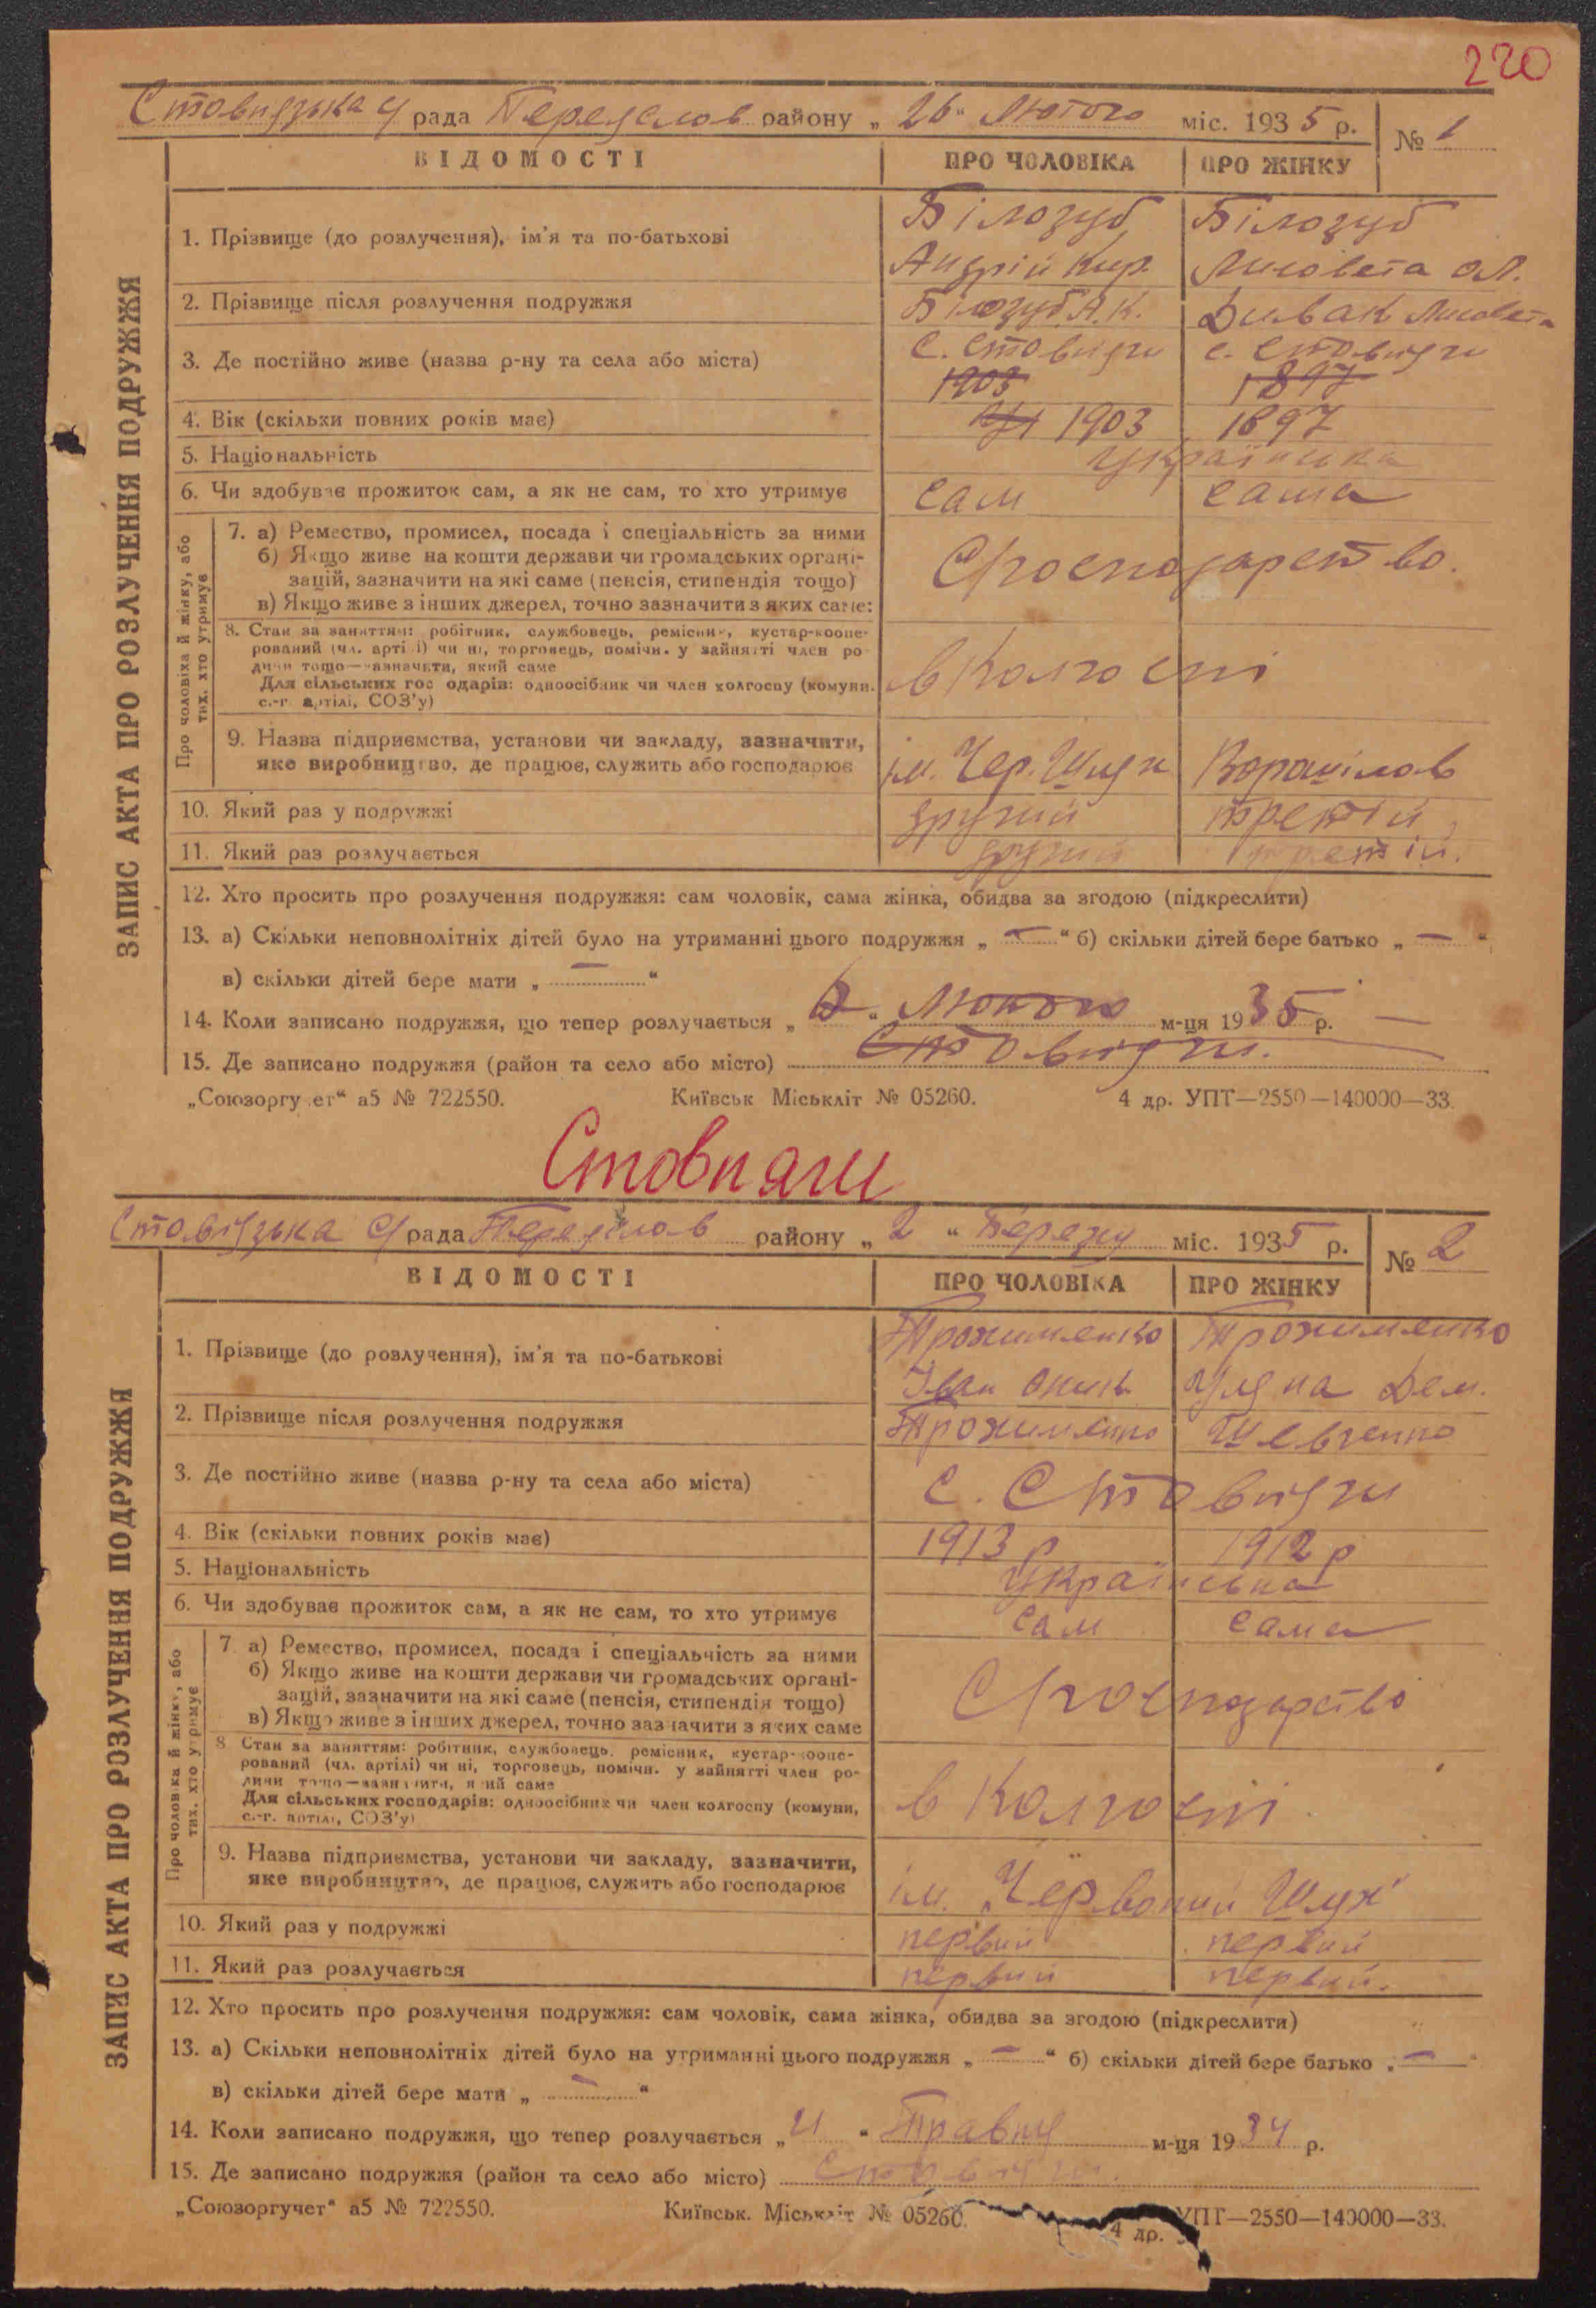 220
рада Переяслов району „ 26 “ Лютого міс. 1935 р. № 1
ВІДОМОСТІ ПРО ЧОЛОВІКА ПРО ЖІНКУ
ЗАПИС АКТА ПРО РОЗЛУЧЕННЯ ПОДРУЖЖЯ
1. Прізвище (до розлучення), ім'я та по-батькові Білозуб Білозуб
Андрій Кир. Лисовета
2. Прізвище після розлучення подружжя Білозуб А. К. Дивак Лисовета
3. Де постійно живе (назва р-ну та села або міста) с. Стовпяги с. Стовпяги
1903 1897
4. Вік (скільки повних років має) 1903 1897
5. Національність українська
6. Чи здобуває прожиток сам, а як не сам, то хто утримує сам сама
Про чоловіка й жінку, або тих, хто утримує
7. а) Ремество, промисел, посада і спеціальність за ними
б) Якщо живе на кошти держави чи громадських органі-
зацій, зазначити на які саме (пенсія, стипендія тощо) С/господарство.
в) Якщо живе з інших джерел, точно зазначити з яких саме:
8. Стан за заняттям: робітник, службовець, ремісник, кустар-коопе-
рований (чл. артілі) чи ні, торговець, помічн. у зайнятті член ро-
дини тощо—зазначити, який саме
Для сільських господарів: одноосібник чи член колгоспу (комуни, в колгоспі
с.-г. артілі, СОЗ'у)
9. Назва підприємства, установи чи закладу, зазначити,
яке виробництво, де працює, служить або господарює ім. Чер. Шлях Ворошілов
10. Який раз у подружжі другий третій
11. Який раз розлучається другий третій.
12. Хто просить про розлучення подружжя: сам чоловік, сама жінка, обидва за згодою (підкреслити)
13. а) Скільки неповнолітніх дітей було на утриманні цього подружжя „ — “ б) скільки дітей бере батько „ — “
в) скільки дітей бере мати „ — “
14. Коли записано подружжя, що тепер розлучається „ “ Лютого м-ця 1935 р. —
15. Де записано подружжя (район та село або місто) Стовпяги.
„Союзоргучет“ а5 № 722550. Київськ Міськліт № 05260. 4 др. УПТ—2550—140000—33.
Стовпяги
рада Переяслов району „ 2 “ Березня міс. 1935 р. № 2
ВІДОМОСТІ ПРО ЧОЛОВІКА ПРО ЖІНКУ
ЗАПИС АКТА ПРО РОЗЛУЧЕННЯ ПОДРУЖЖЯ
1. Прізвище (до розлучення), ім'я та по-батькові Трохименко Трохименко
Іван Уляна Дем.
2. Прізвище після розлучення подружжя Трохименко Шевченко
3. Де постійно живе (назва р-ну та села або міста) с. Стовпяги
4. Вік (скільки повних років має) 1913 р 1912 р
5. Національність українська
6. Чи здобуває прожиток сам, а як не сам, то хто утримує сам сама
Про чоловіка й жінку, або тих, хто утримує
7. а) Ремество, промисел, посада і спеціальність за ними
б) Якщо живе на кошти держави чи громадських органі-
зацій, зазначити на які саме (пенсія, стипендія тощо) С/господарство
в) Якщо живе з інших джерел, точно зазначити з яких саме
8. Стан за заняттям: робітник, службовець, ремісник, кустар-коопе-
рований (чл. артілі) чи ні, торговець, помічн. у зайнятті член ро-
дини тощо—зазначити, який саме
Для сільських господарів: одноосібник чи член колгоспу (комуни, в колгоспі
с.-г. артілі, СОЗ'у)
9. Назва підприємства, установи чи закладу, зазначити,
яке виробництво, де працює, служить або господарює ім. „Червоний Шлях“
10. Який раз у подружжі первий первий
11. Який раз розлучається первий первий.
12. Хто просить про розлучення подружжя: сам чоловік, сама жінка, обидва за згодою (підкреслити)
13. а) Скільки неповнолітніх дітей було на утриманні цього подружжя „ — “ б) скільки дітей бере батько „ — “
в) скільки дітей бере мати „ — “
14. Коли записано подружжя, що тепер розлучається „ “ Травня м-ця 1934 р.
15. Де записано подружжя (район та село або місто) Стовпяги.
„Союзоргучет“ а5 № 722550. Київськ. Міськліт № 05260. 4 др. УПТ—2550—140000—33.